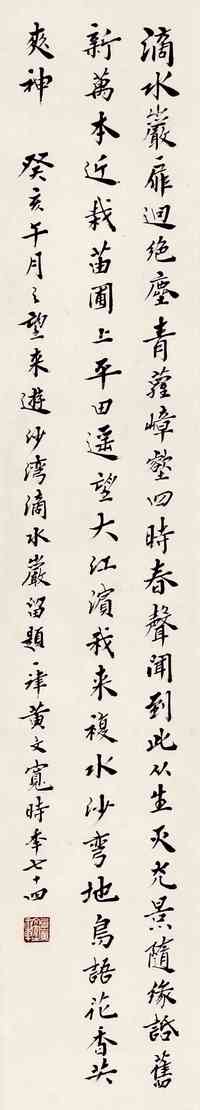 滴水巖扉迥絶塵青蘿嶂壑四時春聲聞到此从生灭光景隨緣話舊
新萬本近栽苗圃上平田遥望大江濱我來複水沙彎地鳥語花香共
爽神 癸亥午月之望來遊沙湾滴水巖留題一律黄文寬時年七十四